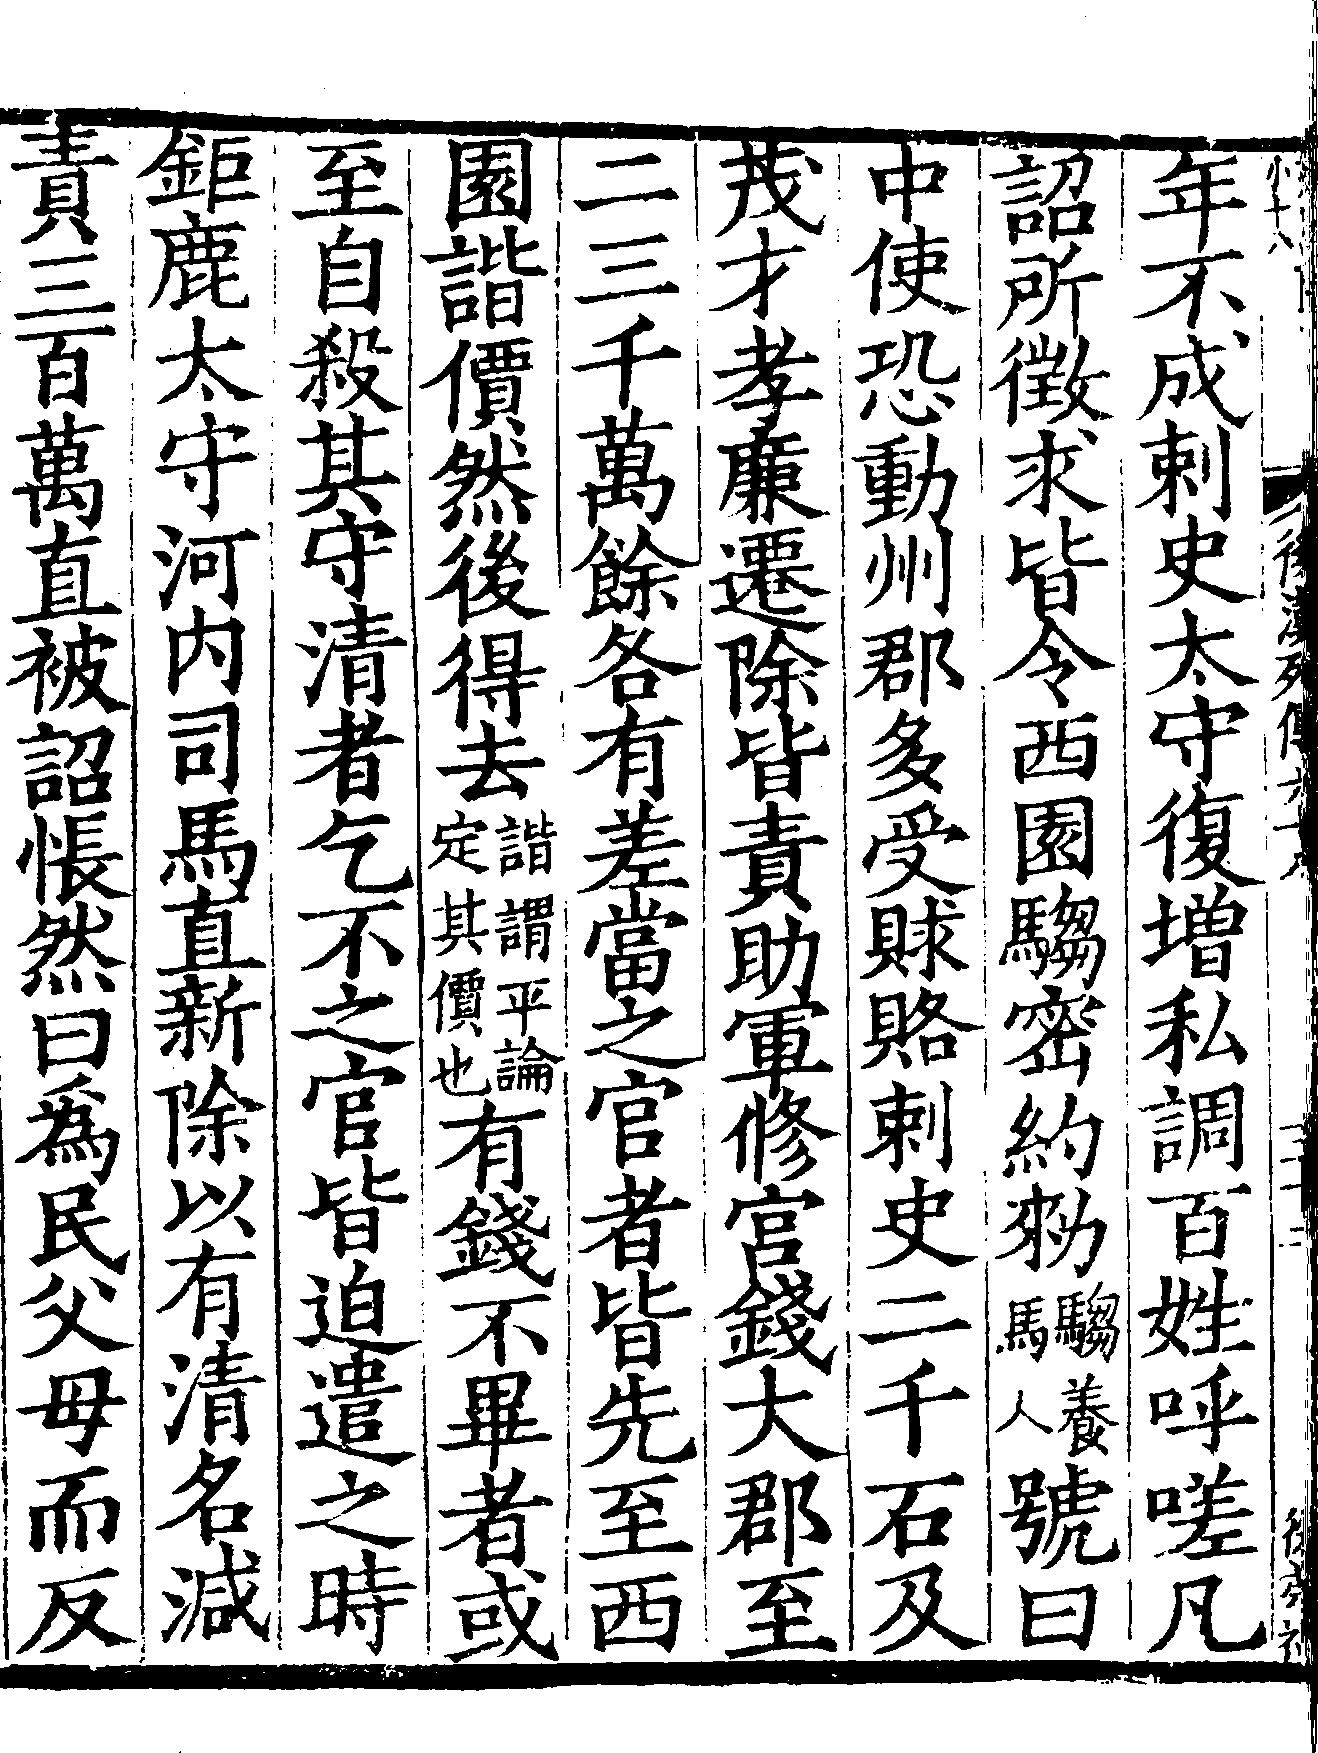 年不成刺史太守復增私調百姓呼嗟凡
詔所徵求皆令西園騶密約勑騶養馬人號曰
中使恐動州郡多受賕賂刺史二千石及
茂才孝廉遷除皆責助軍修宮錢大郡至
二三千萬餘各有差當之官者皆先至西
園諧價然後得去諧謂平論定其價也有錢不畢者或
至自殺其守清者乞不之官皆迫遣之時
鉅鹿太守河內司馬直新除以有清名減
責三百萬直被詔悵然曰為民父母而反